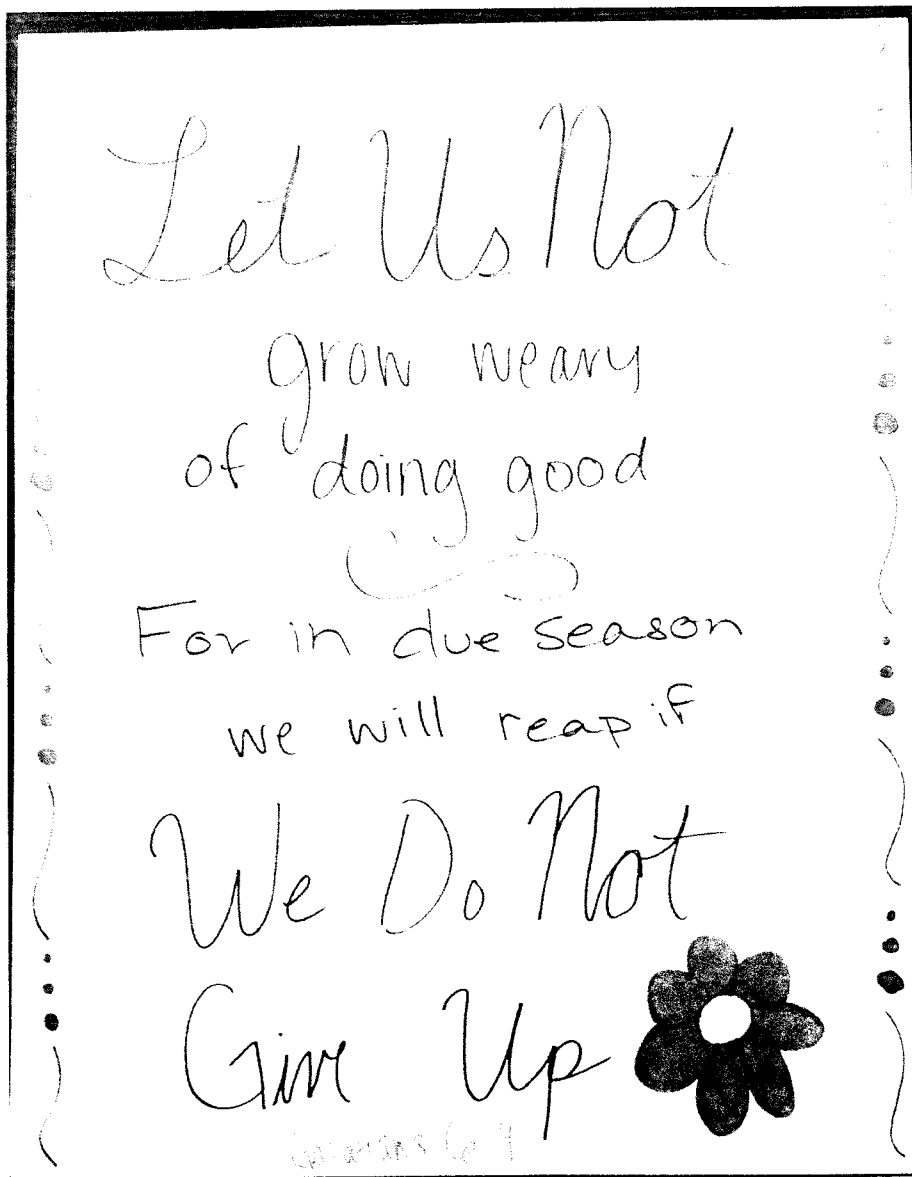 Let Us Not
grow weary
of doing good
For in due season
we will reap if
We Do Not
Give Up